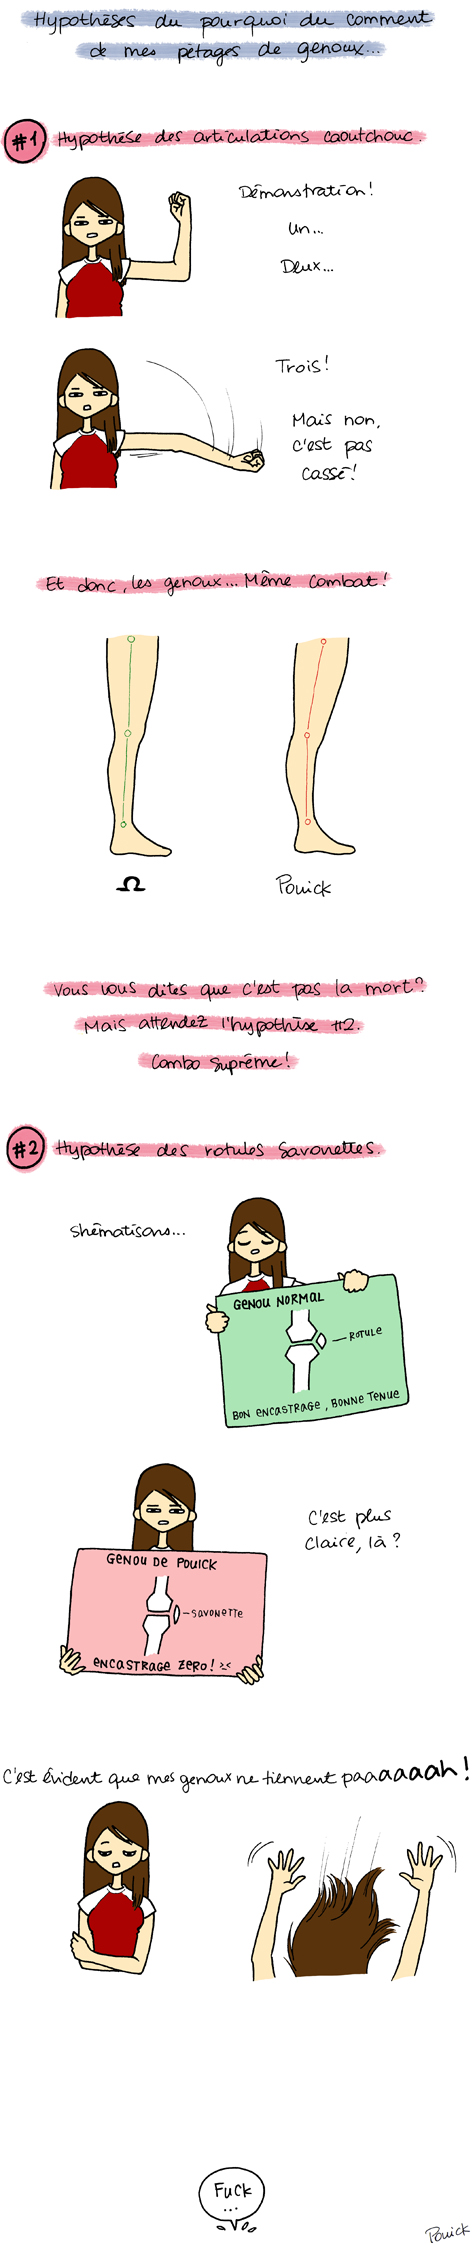 Hypothèses du pourquoi du comment
de mes pètages de genoux...
#1 Hypothèse des articulations caoutchouc.
Démonstration!
Un...
Deux...
Trois!
Mais non,
c'est pas
cassé!
Et donc, les genoux... Même combat!
Ω
Pouick
Vous vous dites que c'est pas la mort?
Mais attendez l'hypothèse #2.
Combo suprême!
#2 Hypothèse des rotules savonettes.
Shématisons...
GENOU NORMAL
ROTULE
BON ENCASTRAGE, BONNE TENUE
GENOU DE POUICK
SAVONETTE
ENCASTRAGE ZERO! >.<
C'est plus
claire, là?
C'est évident que mes genoux ne tiennent paaaaaaah!
Fuck
...
Pouick